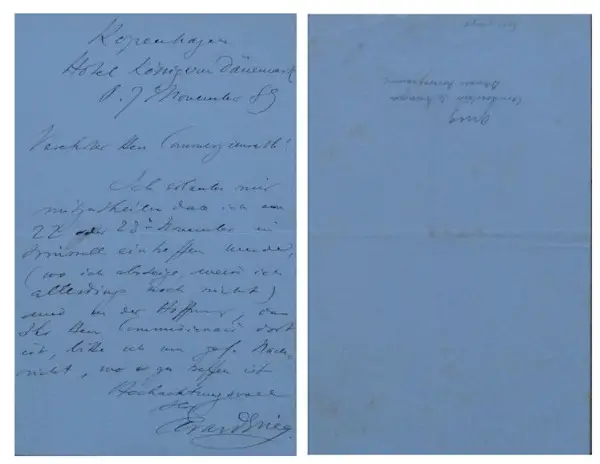 Kopenhagen
Hotel König von Dänemark
d. 7 November 89
Verehrter Herr Commerzienrath!
Ich erlaube mir
mitzutheilen dass ich am
27 oder 28 November in
eintreffen werde,
(wo ich absteige, weiss ich
allerdings noch nicht)
und in der Hoffnung, dass
Ihr Herr Commissionair dort
ist, bitte ich um gef. Nach-
richt, wo er zu treffen ist
Hochachtungsvoll
Ihr
Edvard Grieg
Grieg